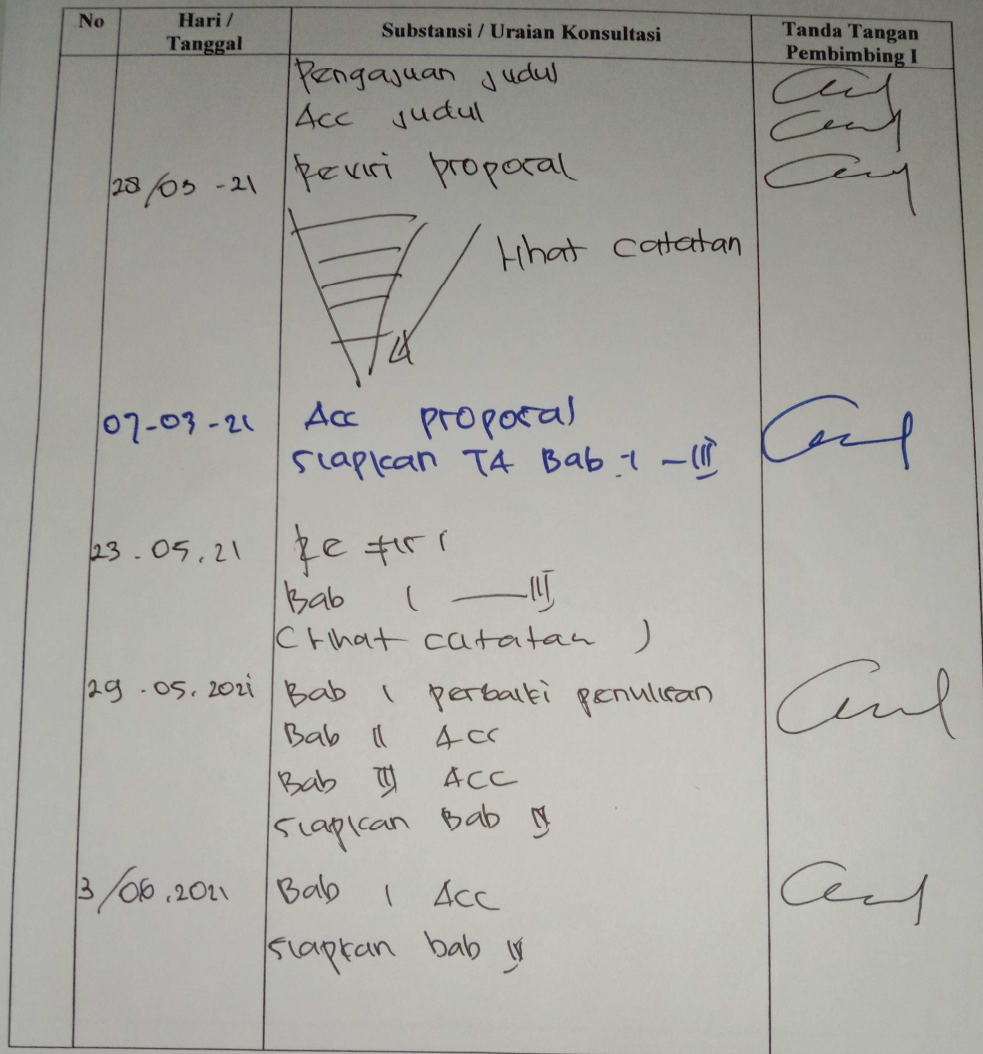 No
Hari /
Tanggal
Substansi / Uraian Konsultasi
Tanda Tangan
Pembimbing I
Pengajuan judul
Acc judul
28/03 -21 Revisi proposal
lihat catatan
07-03-21 Acc proposal
siapkan TA Bab I - III
23.05.21 Revisi
Bab I — III
(lihat catatan)
29.05.2021 Bab I perbaiki penulisan
Bab II Acc
Bab III ACC
siapkan Bab IV
3/06.2021 Bab I Acc
siapkan bab IV